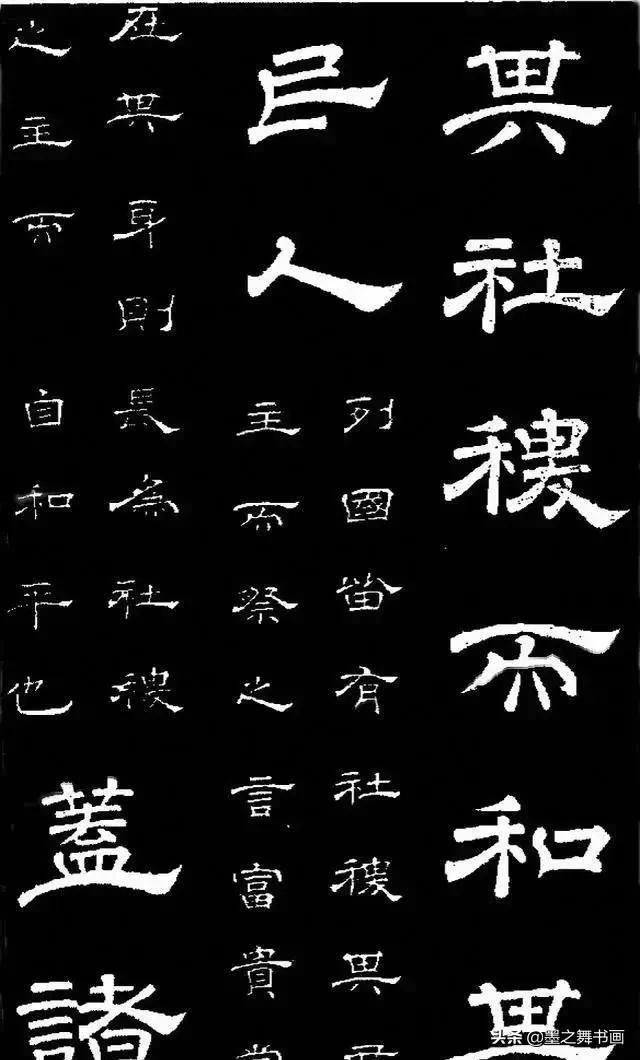 其社稷而和其
民人
列國皆有社稷其君
主而祭之言富貴常
在其身則長為社稷
之主而 自和平也
蓋諸
头条 @墨之舞书画